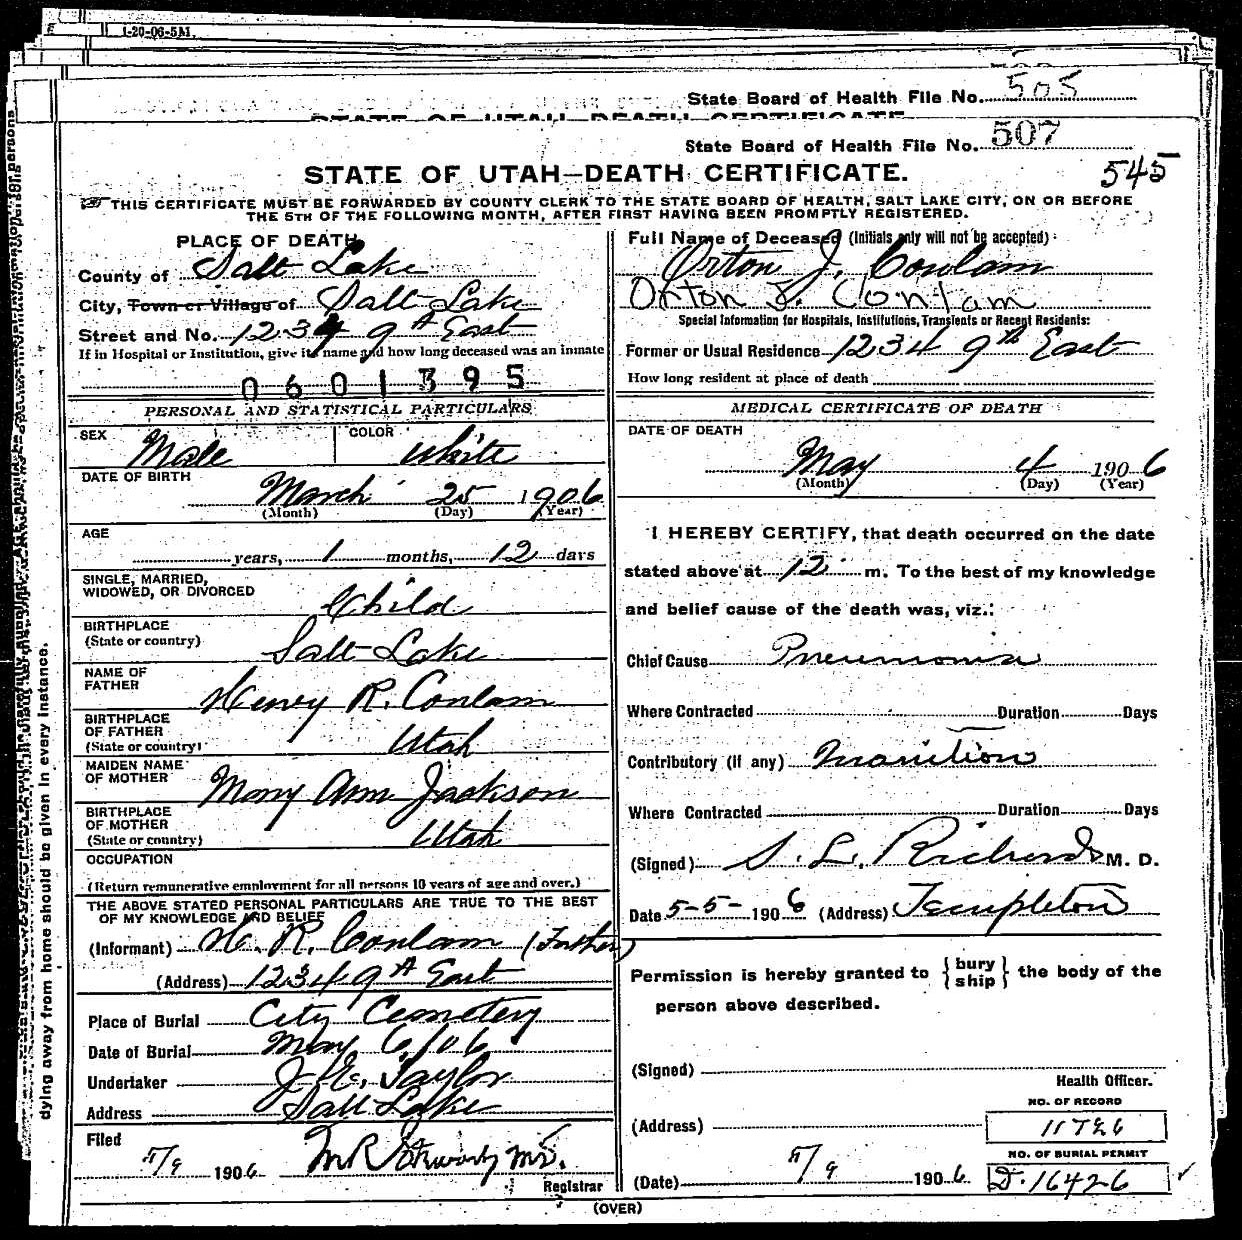 1-20-06-5M.
State Board of Health File No. 505
STATE OF UTAH DEATH CERTIFICATE
State Board of Health File No. 507
STATE OF UTAH—DEATH CERTIFICATE.
545
THIS CERTIFICATE MUST BE FORWARDED BY COUNTY CLERK TO THE STATE BOARD OF HEALTH, SALT LAKE CITY, ON OR BEFORE
THE 5TH OF THE FOLLOWING MONTH, AFTER FIRST HAVING BEEN PROMPTLY REGISTERED.
PLACE OF DEATH
County of Salt Lake
City, Town or Village of Salt Lake
Street and No. 1234 9th East
If in Hospital or Institution, give its name and how long deceased was an inmate
0601395
PERSONAL AND STATISTICAL PARTICULARS
SEX Male COLOR White
DATE OF BIRTH
March 25 1906
(Month) (Day) (Year)
AGE
years, 1 months, 12 days
SINGLE, MARRIED,
WIDOWED, OR DIVORCED Child
BIRTHPLACE
(State or country) Salt Lake
NAME OF
FATHER Henry R. Conlam
BIRTHPLACE
OF FATHER
(State or country) Utah
MAIDEN NAME
OF MOTHER Mary Ann Jackson
BIRTHPLACE
OF MOTHER
(State or country) Utah
OCCUPATION
(Return remunerative employment for all persons 10 years of age and over.)
THE ABOVE STATED PERSONAL PARTICULARS ARE TRUE TO THE BEST
OF MY KNOWLEDGE AND BELIEF
(Informant) H. R. Conlam (Father)
(Address) 1234 9th East
Place of Burial City Cemetery
Date of Burial May 6/06
Undertaker J. E. Taylor
Address Salt Lake
Filed
5/9 1906
Registrar
Full Name of Deceased (Initials only will not be accepted)
Orton J. Conlam
Orton J. Conlam
Special Information for Hospitals, Institutions, Transients or Recent Residents:
Former or Usual Residence 1234 9th East
How long resident at place of death
MEDICAL CERTIFICATE OF DEATH
DATE OF DEATH
May 4 1906
(Month) (Day) (Year)
I HEREBY CERTIFY, that death occurred on the date
stated above at 12 m. To the best of my knowledge
and belief cause of the death was, viz.:
Chief Cause Pneumonia
Where Contracted Duration Days
Contributory (if any) Inanition
Where Contracted Duration Days
(Signed) S. L. Richards M. D.
Date 5-5- 1906 (Address) Templeton
Permission is hereby granted to {bury
ship} the body of the
person above described.
(Signed)
Health Officer.
NO. OF RECORD
(Address)
NO. OF BURIAL PERMIT
(Date) 5/9 1906 D. 16426
(OVER)
dying away from home should be given in every instance.